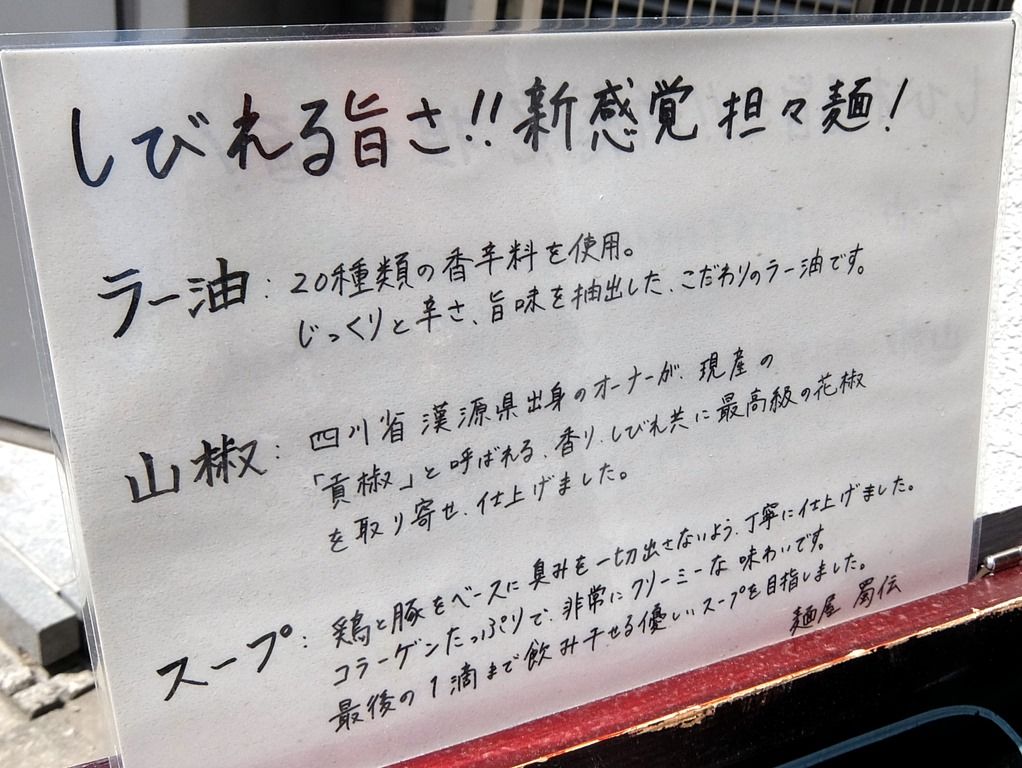 しびれる旨さ!!新感覚担々麺!
ラー油：20種類の香辛料を使用。
じっくりと辛さ、旨味を抽出した、こだわりのラー油です。
山椒：四川省漢源県出身のオーナーが、現産の
「貢椒」と呼ばれる、香り、しびれ共に最高級の花椒
を取り寄せ、仕上げました。
スープ：鶏と豚をベースに臭みを一切出さないよう、丁寧に仕上げました。
コラーゲンたっぷりで、非常にクリーミーな味わいです。
最後の1滴まで飲み干せる優しいスープを目指しました。
麺屋 蜀伝